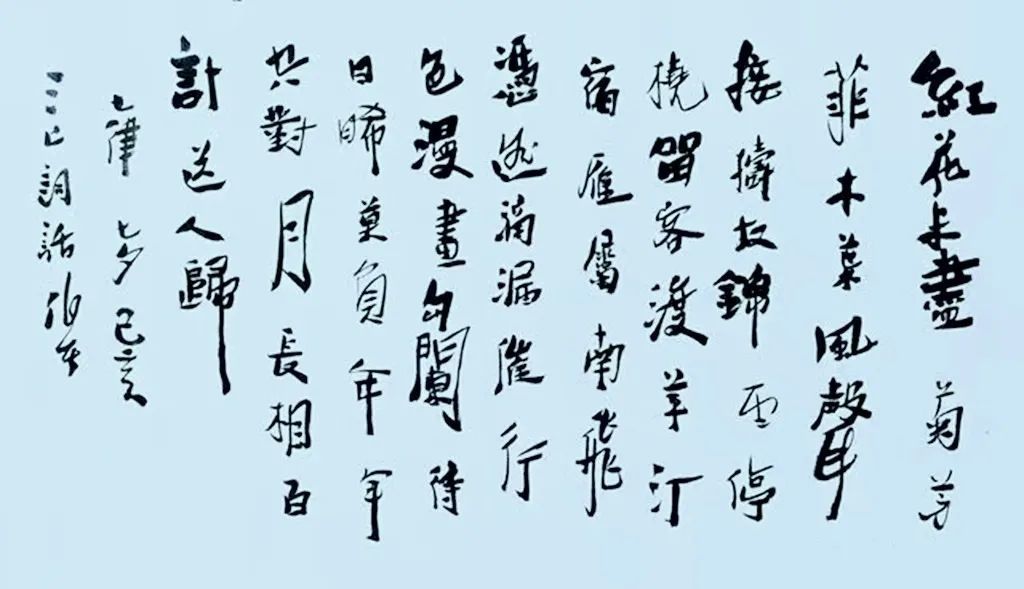 紅花未盡菊芳
菲木葉風聲
接擣衣錦停
橈留客渡草汀
宿雁屬南飛
憑滴漏催行
色漫畫勾闌待
日晞莫負年年
共對月長相百
計送人歸
七律 七夕 己亥
詞話